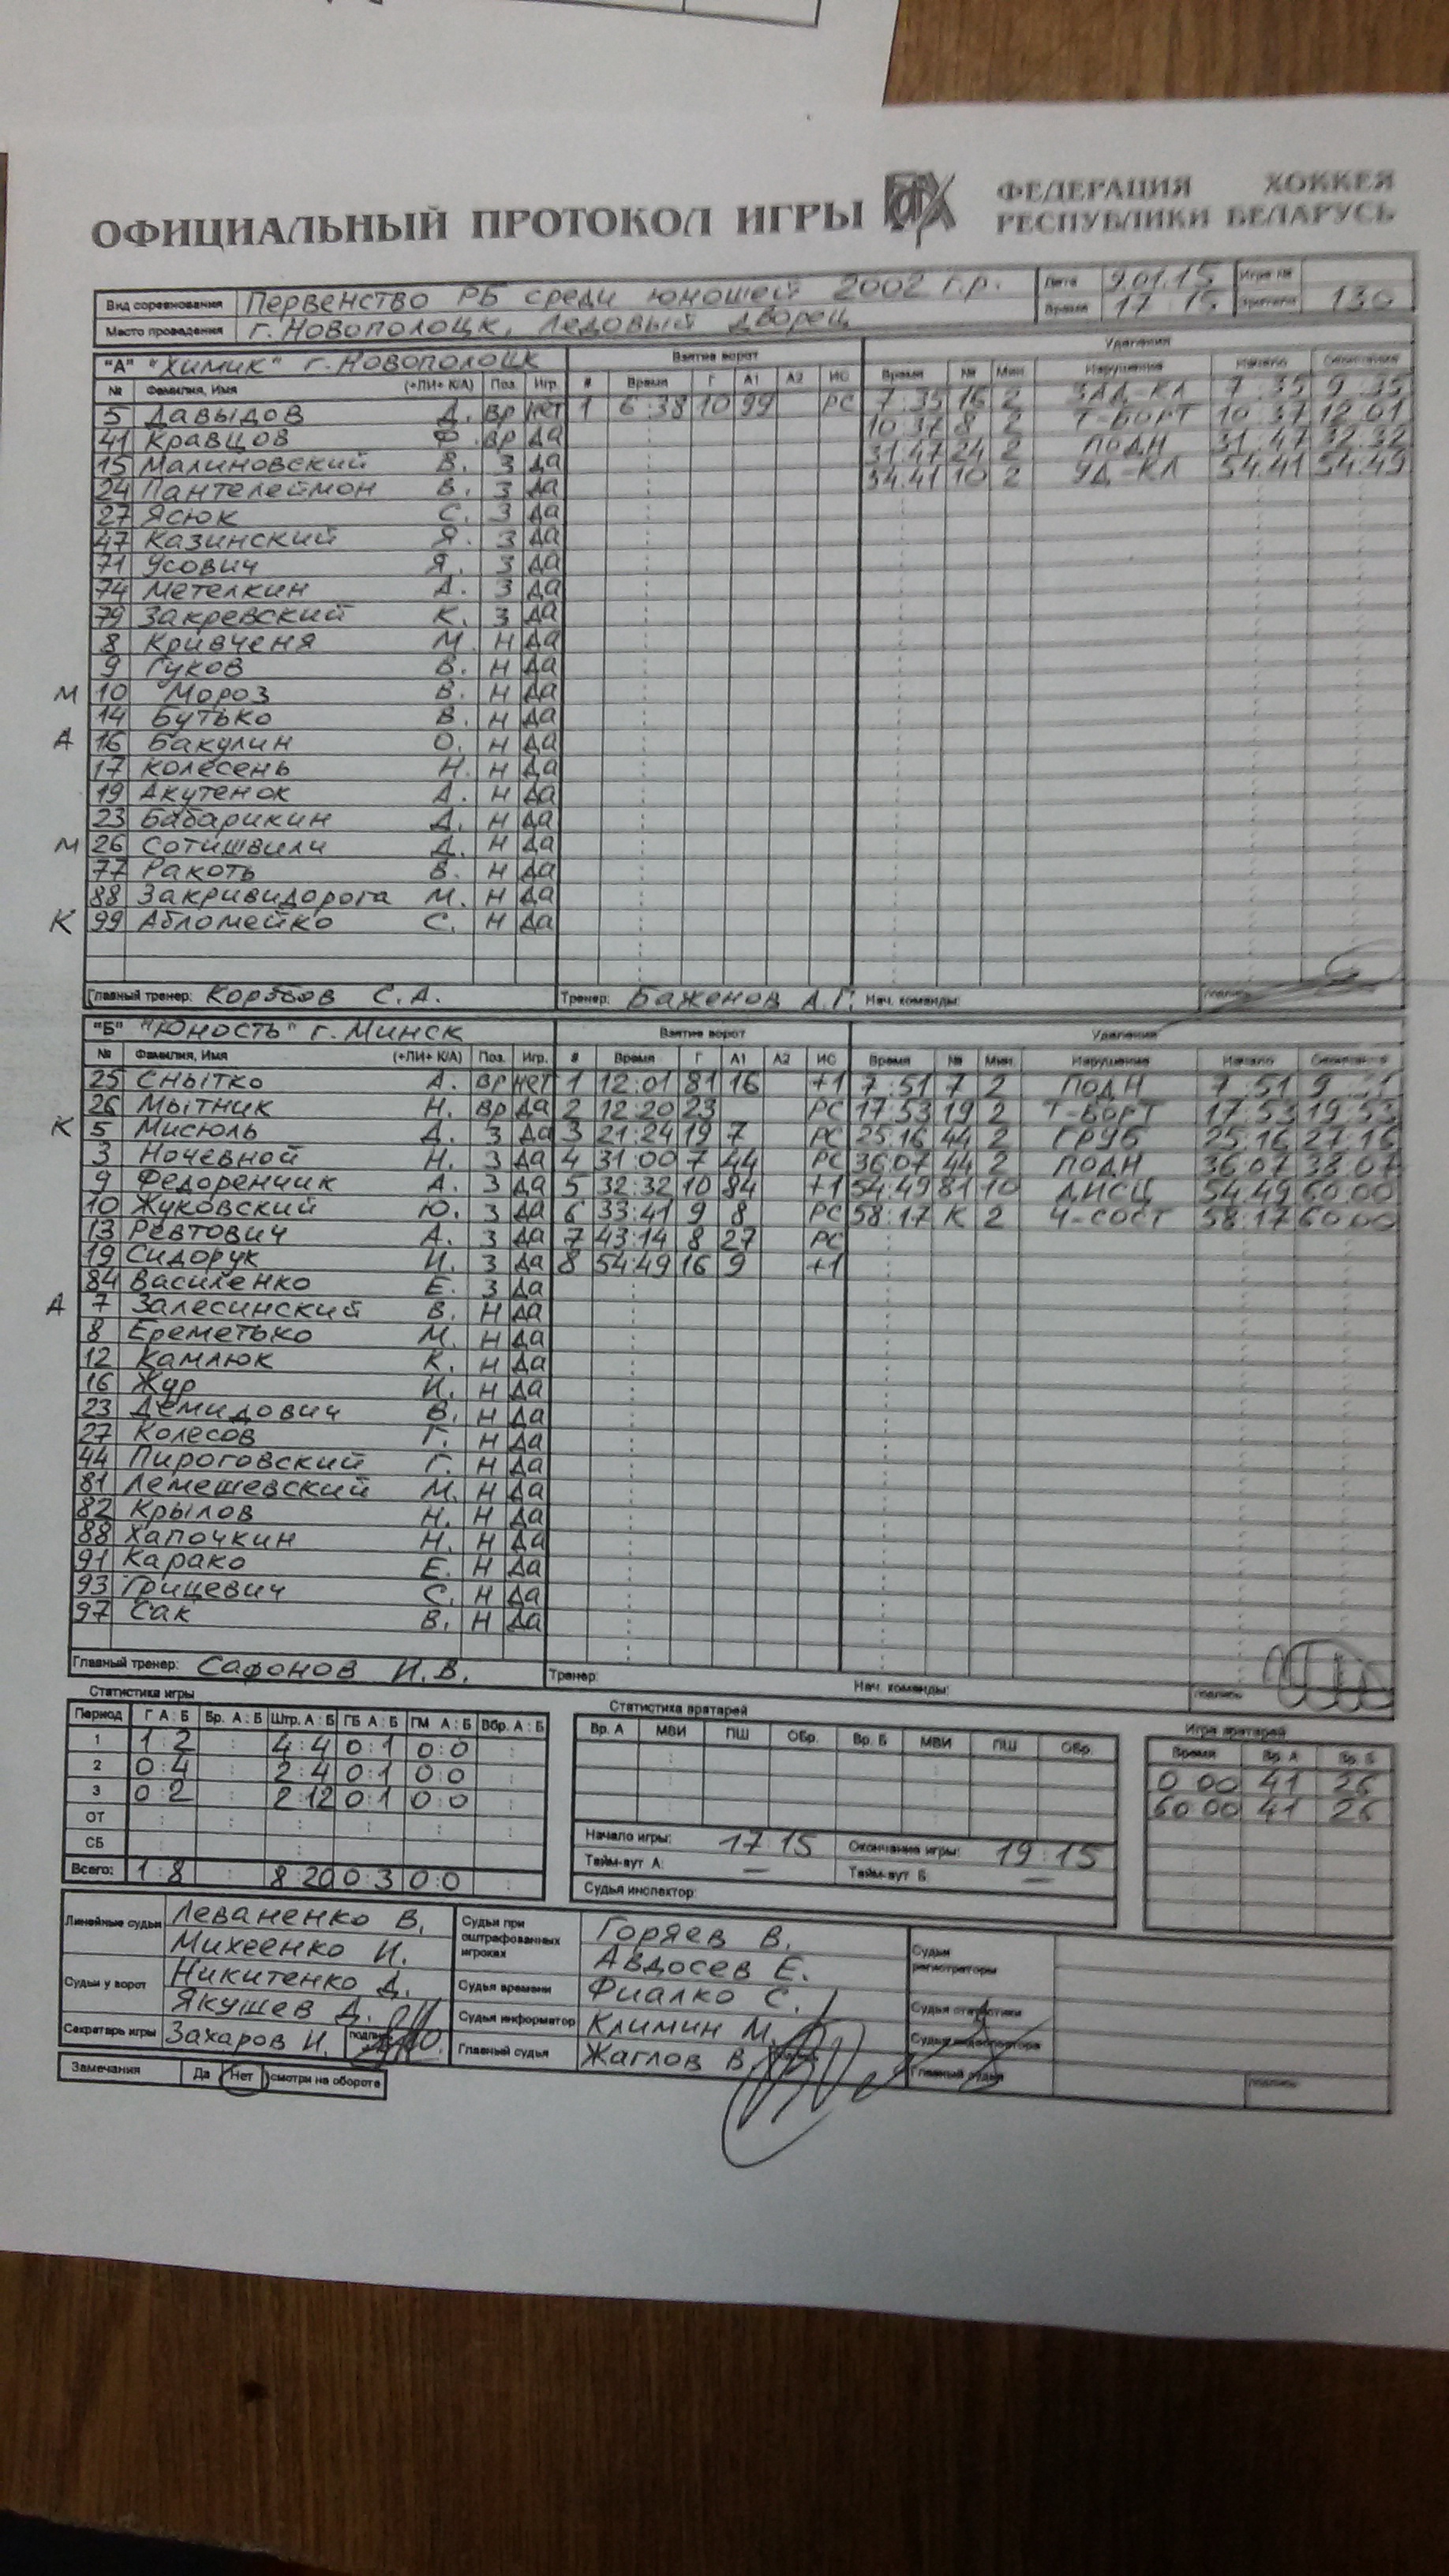 ОФИЦИАЛЬНЫЙ ПРОТОКОЛ ИГРЫ ФЕДЕРАЦИЯ ХОККЕЯ
РЕСПУБЛИКИ БЕЛАРУСЬ
Вид соревнования Первенство РБ среди юношей 2002 г.р. Дата 9.01.15 Игра №
Место проведения г. Новополоцк, Ледовый дворец Время 17:15 Зрители 130
"А" "Химик" г. Новополоцк Взятие ворот Удаления
№ Фамилия, Имя (+ЛИ+ К/А) Поз. Игр. # Время Г А1 А2 ИС Время № Мин. Нарушение Начало Окончание
5 Давыдов Д. Вр нет 1 6:38 10 99 РС 7:35 16 2 ЗАД-КЛ 7:35 9:35
41 Кравцов Ф. Вр да 10 37 8 2 Т-БОРТ 10:37 12:01
15 Малиновский В. З да 31:47 24 2 ПОДН 31:47 32:32
24 Пантелеймон В. З да 54:41 10 2 УД-КЛ 54:41 54:49
27 Ясюк С. З да
47 Казинский Я. З да
71 Усович Я. З да
74 Метелкин А. З да
79 Закревский К. З да
8 Кривченя М. Н да
9 Гуков В. Н да
М 10 Мороз В. Н да
14 Бутько В. Н да
А 16 Бакулин О. Н да
17 Колесень Н. Н да
19 Акутенок А. Н да
23 Бабарикин Д. Н да
М 26 Сотишвили Д. Н да
77 Ракоть В. Н да
88 Закривидорога М. Н да
К 99 Абломейко С. Н да
Главный тренер: С.А. Тренер: Баженов А.Г. Нач. команды: подпись
"Б" "Юность" г. Минск Взятие ворот Удаления
№ Фамилия, Имя (+ЛИ+ К/А) Поз. Игр. # Время Г А1 А2 ИС Время № Мин. Нарушение Начало Окончание
25 Снытко А. Вр нет 1 12:01 81 16 +1 7:51 7 2 ПОДН 7:51
26 Мытник Н. Вр да 2 12:20 23 РС 17:53 19 2 Т-БОРТ 17:53 19:53
К 5 Мисюль Д. З да 3 21:24 19 7 РС 25:16 44 2 ГРУБ 25:16 27:16
3 Ночевной Н. З да 4 31:00 7 44 РС 36:07 44 2 ПОДН 36:07 38:07
9 Федоренчик А. З да 5 32:32 10 84 +1 54:49 81 10 ДИСЦ 54:49 60:00
10 Жуковский Ю. З да 6 33:41 9 8 РС 58:17 К 2 Ч-СОСТ 58:17 60:00
13 Ревтович А. З да 7 43:14 8 27 РС
19 Сидорук И. З да 8 54:49 16 9 +1
84 Василенко Е. З да
А 7 Залесинский В. Н да
8 Ереметько М. Н да
12 Камлюк К. Н да
16 Жур И. Н да
23 Демидович В. Н да
27 Колесов Г. Н да
44 Пироговский Г. Н да
81 Лемешевский М. Н да
82 Крылов Н. Н да
88 Хапочкин Н. Н да
91 Карако Е. Н да
93 Грицевич С. Н да
97 Сак В. Н да
Главный тренер: Сафонов И.В. Тренер: Нач. команды: подпись
Статистика игры Статистика вратарей Игра вратарей
Период Г А:Б Бр. А:Б Штр. А:Б ГБ А:Б ГМ А:Б Вбр. А:Б Вр. А МВИ ПШ ОБр. Вр. Б МВИ ПШ ОБр. Время Вр. А Вр. Б
1 1:2 4:4 0:1 0:0 0 00 41 26
2 0:4 2:4 0:1 0:0 60 00 41 26
3 0:2 2:12 0:1 0:0
ОТ
СБ
Всего: 1:8 8:20 0:3 0:0
Начало игры: 17 15 Окончание игры: 19:15
Тайм-аут А: — Тайм-аут Б: —
Судья инспектор:
Линейные судьи Леваненко В. Судьи при оштрафованных игроках Горяев В. Судьи регистраторы
Михеенко И. Авдосев Е.
Судьи у ворот Никитенко Д. Судья времени Фиалко С. Судья статистики
Якушев Д. Судья информатор Климин М.
Секретарь игры Захаров И. подпись Главный судья Жаглов В. Главный судья подпись
Замечания Да Нет смотри на обороте